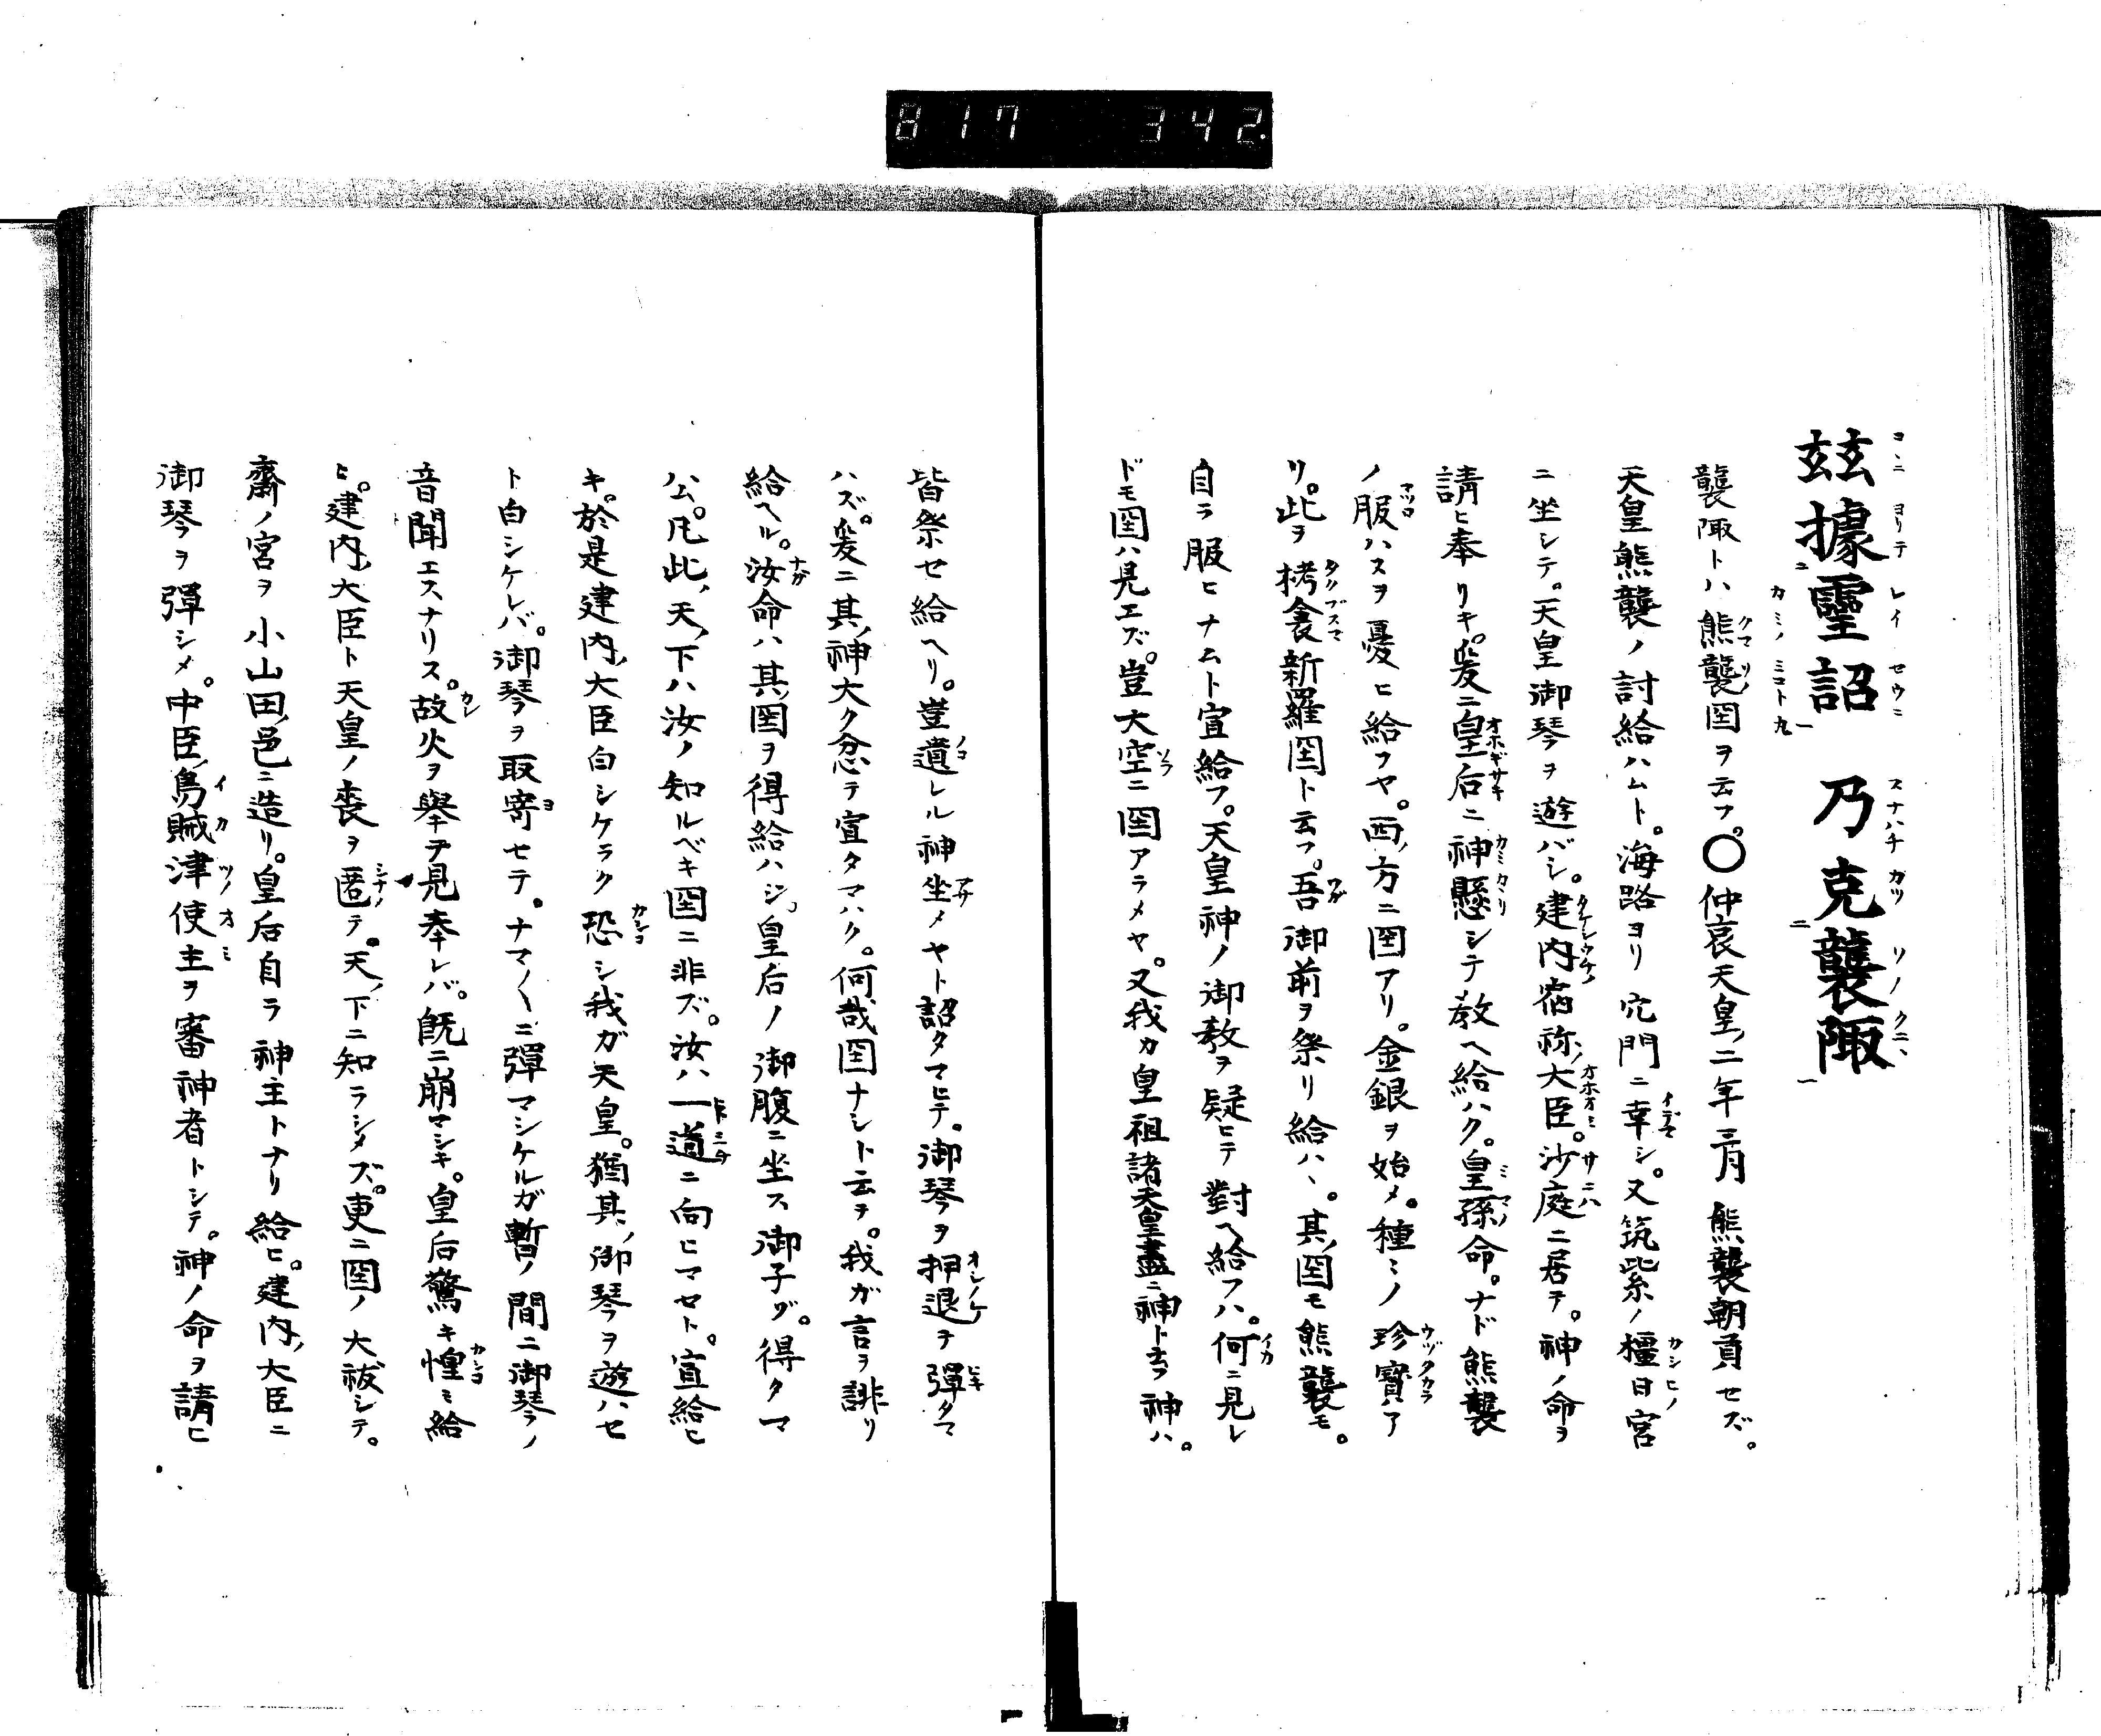 817 342
茲據靈詔 乃克襲陬
襲陬トハ熊襲国ヲ云フ。〇仲哀天皇、二年三月熊襲朝貢セズ。
天皇熊襲ノ討給ハムト。海路ヨリ穴門ニ幸シ。又筑紫ノ橿日宮
ニ坐シテ。天皇御琴ヲ遊バシ。建内宿祢、大臣。沙庭ニ居テ。神ノ命ヲ
請ヒ奉リキ。爰ニ皇后ニ神懸シテ教ヘ給ハク。皇孫命。ナド熊襲
ノ服ハスヲ憂ヒ給フヤ。西ノ方ニ国アリ。金銀ヲ始メ。種ミノ珍寳ア
リ。此ヲ栲衾新羅国ト云フ。吾御前ヲ祭リ給ハヽ。其ノ国モ熊襲モ。
自ラ服ヒナムト宣給フ。天皇神ノ御教ヲ疑ヒテ對ヘ給フハ。何ニ見レ
ドモ国ハ見エズ。豈大空ニ国アラメヤ。又我カ皇祖諸天皇盡ニ神ト云フ神ハ。
皆祭セ給ヘリ。豈遺レル神坐メヤト詔タマヒテ。御琴ヲ押退ヲ彈タマ
ハズ。爰ニ其ノ神大ク忿テ宣タマハク。何哉国ナシト云ヲ。我ガ言ヲ誹リ
給ヘル。汝命ハ其国ヲ得給ハジ。皇后ノ御腹ニ坐ス御子ゾ。得タマ
ハム。凡此ノ天ノ下ハ汝ノ知ルベキ国ニ非ズ。汝ハ一道ニ向ヒマセト。宣給ヒ
キ。於是建内ノ大臣白シケラク恐シ我ガ天皇。猶其ノ御琴ヲ遊ハセ
ト白シケレバ。御琴ヲ取寄セテ。ナマ〱ニ彈マシケルガ暫ノ間ニ御琴ノ
音聞エスナリス。故火ヲ擧テ見奉レバ。既ニ崩マシキ。皇后驚キ惶ミ給
ヒ。建内ノ大臣ト天皇ノ喪ヲ匿テ。天ノ下ニ知ラシメズ。更ニ国ノ大祓シテ。
齋ノ宮ヲ小山田ノ邑ニ造リ。皇后自ラ神主トナリ給ヒ。建内ノ大臣ニ
御琴ヲ彈シメ。中臣ノ烏賊津使主ヲ審神者トシテ。神ノ命ヲ請ヒ